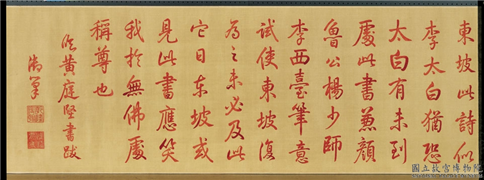 東坡此詩似
李太白猶恐
太白有未到
處此書兼顏
魯公楊少師
李西臺筆意
試使東坡復
為之未必及此
它日東坡或
見此書應笑
我於無佛處
稱尊也
臨黃庭堅書跋
御筆
國立故宮博物院